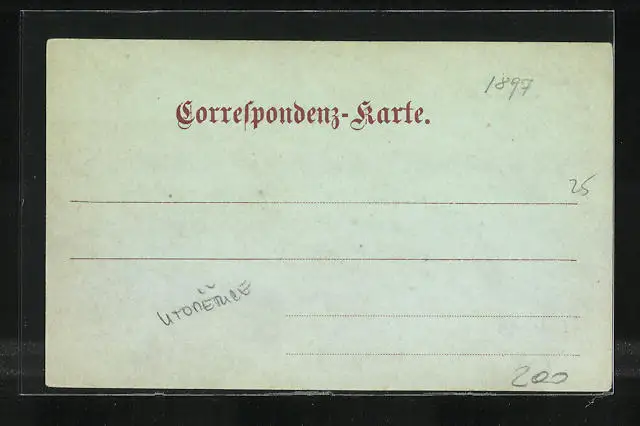 1897
Correſpondenz-Karte.
25
200